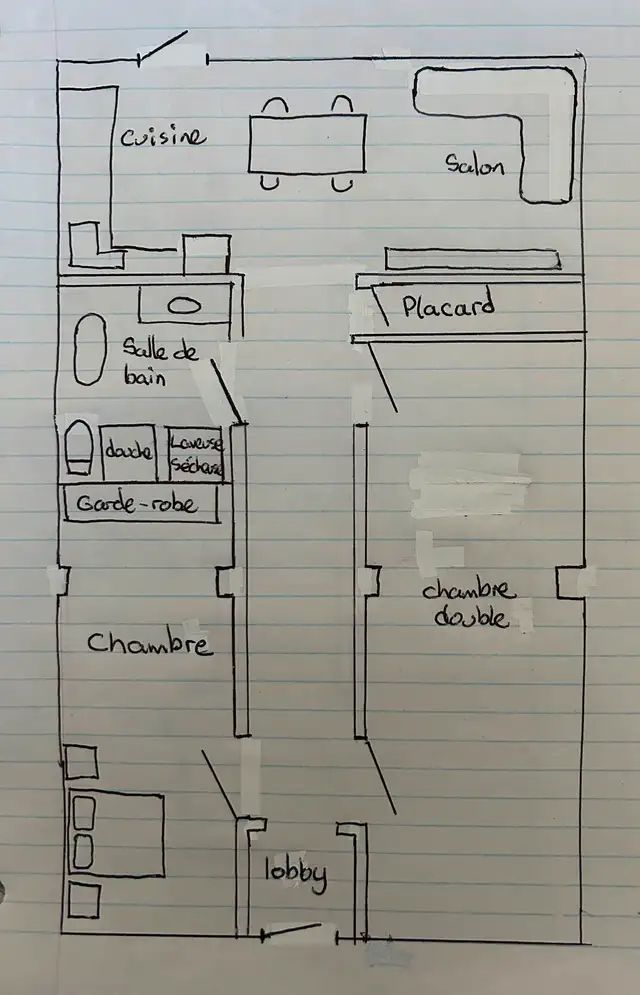 Cuisine
Salon
Placard
Salle de
bain
douche
Laveuse
Sécheuse
Garde-robe
chambre
double
Chambre
lobby